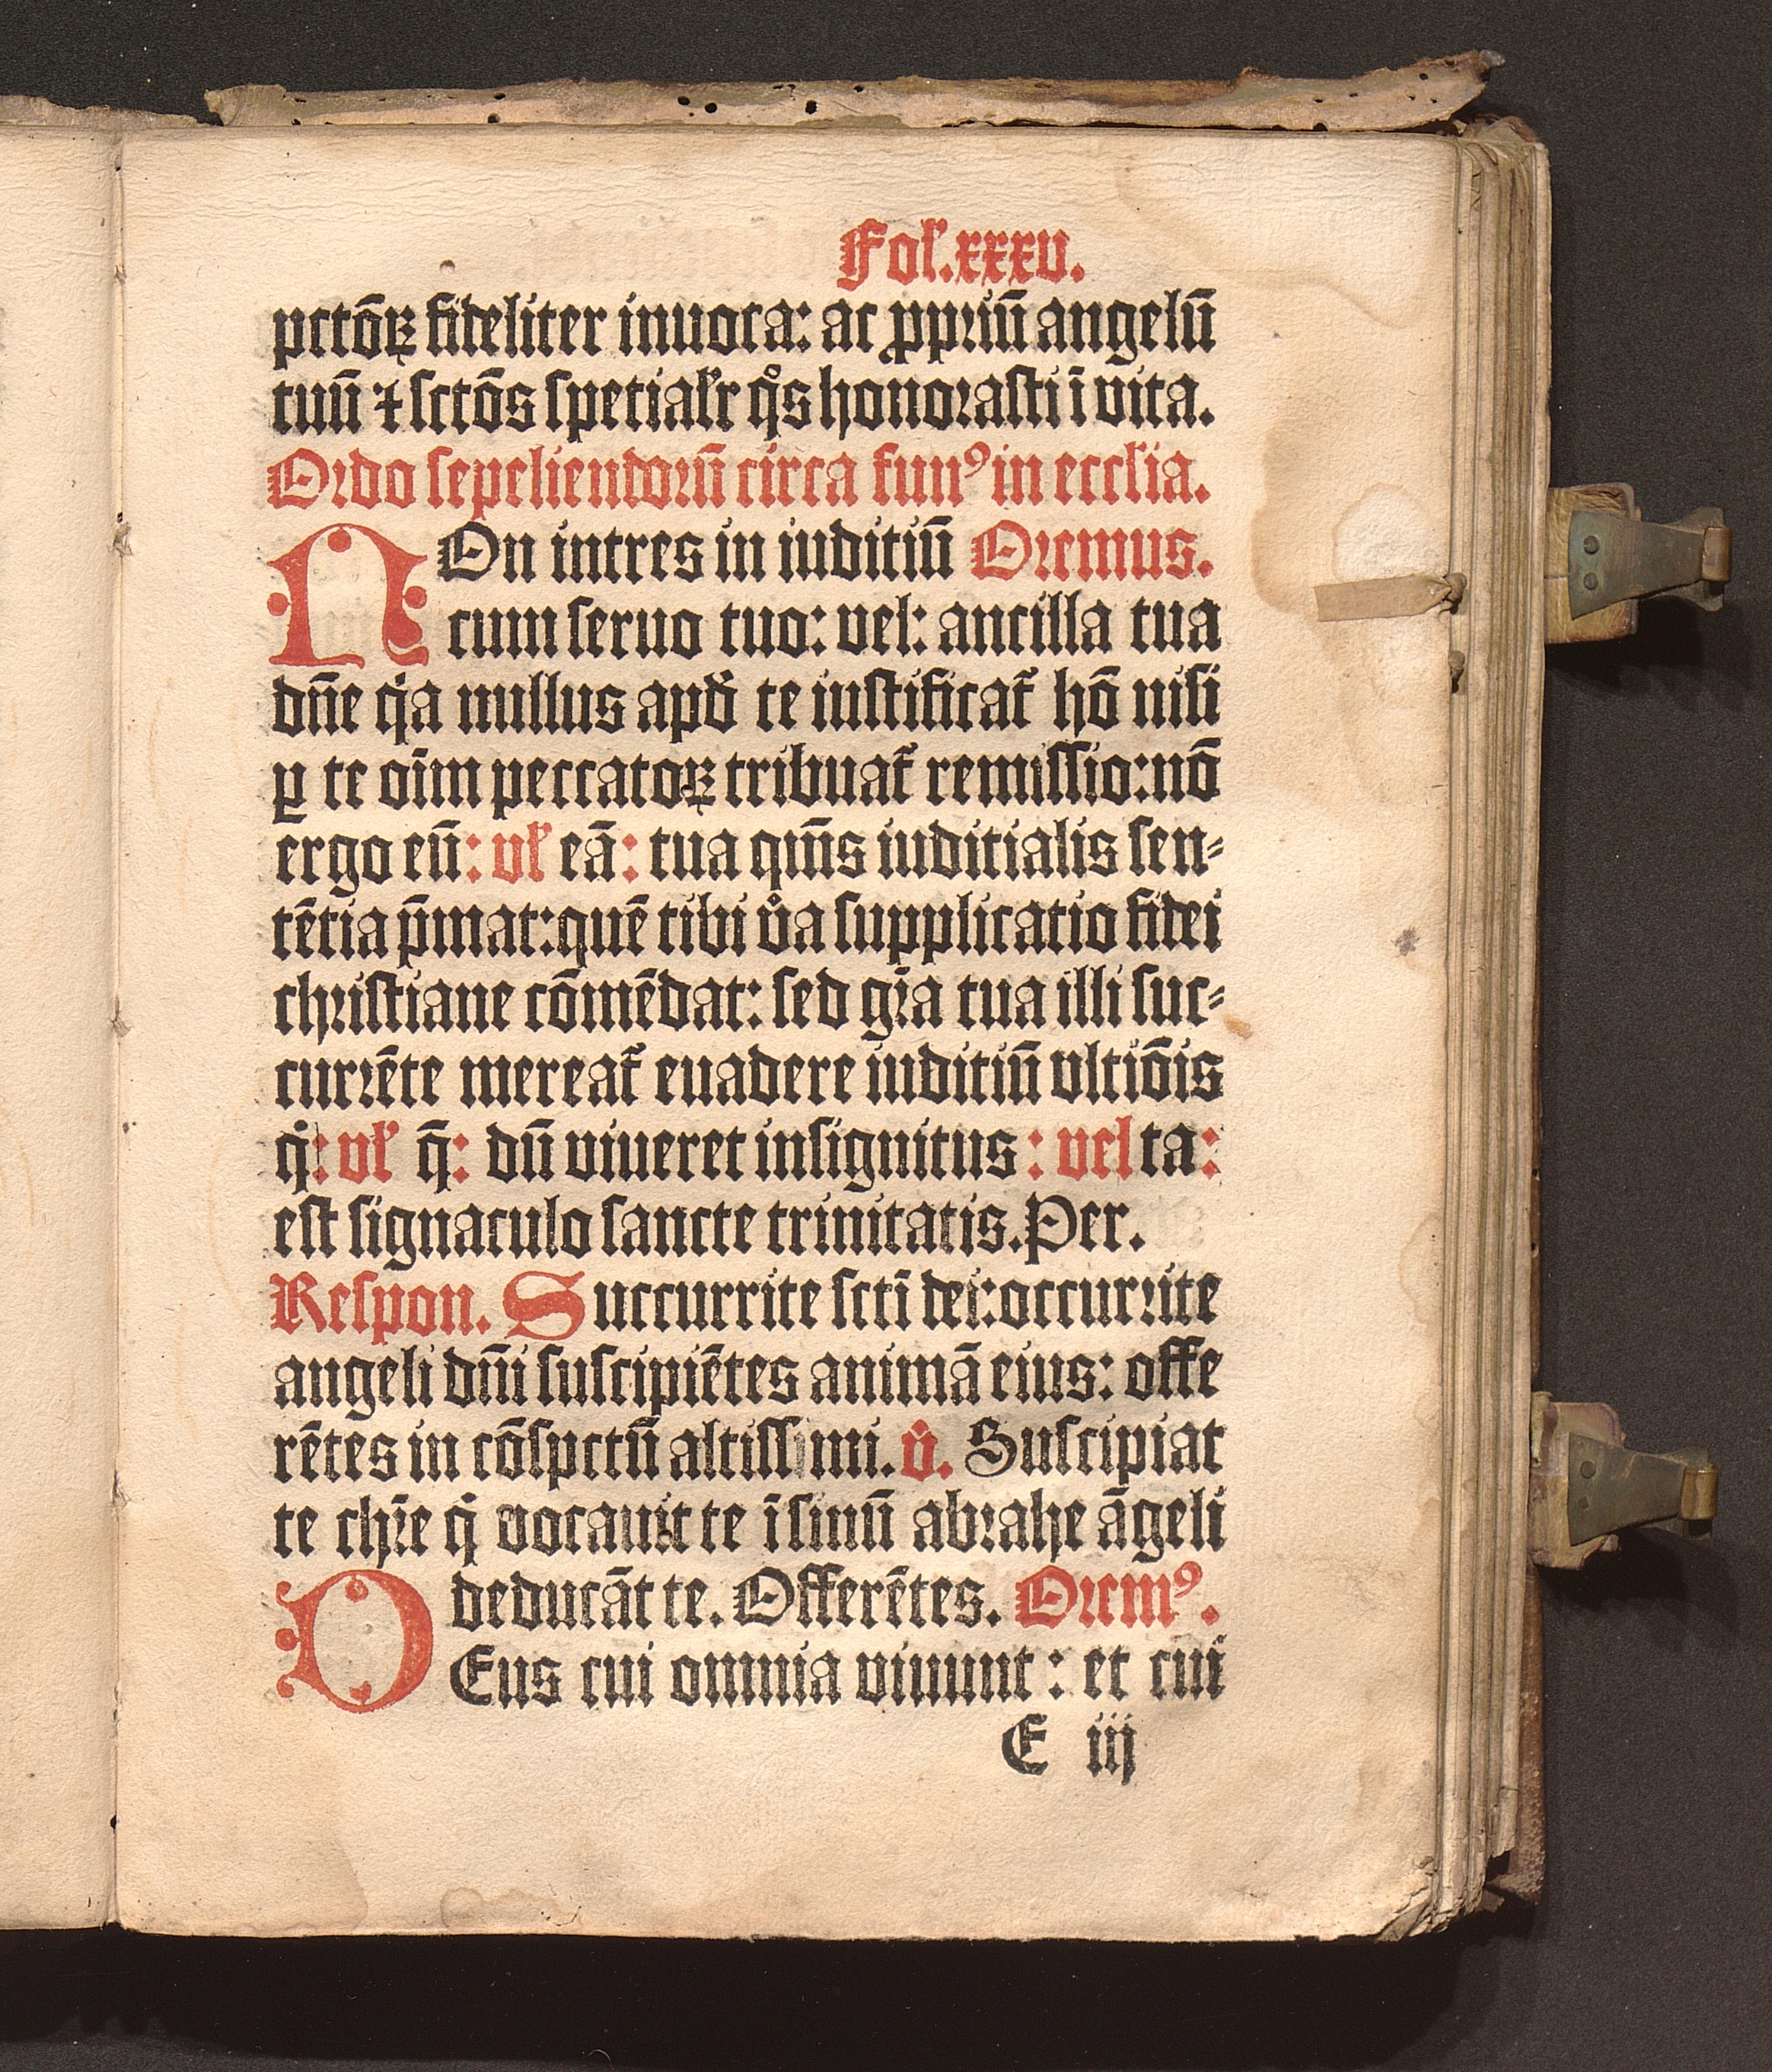 Fol̛.xxxv.
pctōꝝ fideliter inuoca: ac ꝓpriū angelū
tuū ⁊ sctōs spetial̛r qͦs honorasti ī vita.
Ordo sepeliendorū circa funꝰ in eccl̛ia.
NOn intres in iuditiū Oremus.
cum seruo tuo: vel: ancilla tua
dn̄e qͥa nullus apđ te iustificat̄ hō nisi
ꝑ te oīm peccatoꝝ tribuat̄ remissio: nō
ergo eū: vl̛ eā: tua qm̄s iuditialis sen⸗
tētia p̄mat: quē tibi v̊a supplicatio fidei
christiane cōmēdat: sed gr̄a tua illi suc⸗
currēte mereat̄ euadere iuditiū vltiōis
qͥ: vl̛ q̄: dū viueret insignitus: vel ta:
est signaculo sancte trinitatis. Per.
Respon. Succurrite sctī dei: occurrite
angeli dn̄i suscipiētes animā eius: offe
rētes in cōspctū altissimi. v̊. Suscipiat
te chr̄e qͥ vocauit te ī sinū abrahe āgeli
deducāt te. Offerētes. Oremꝰ.
DEus cui omnia viuunt: et cui
E iij